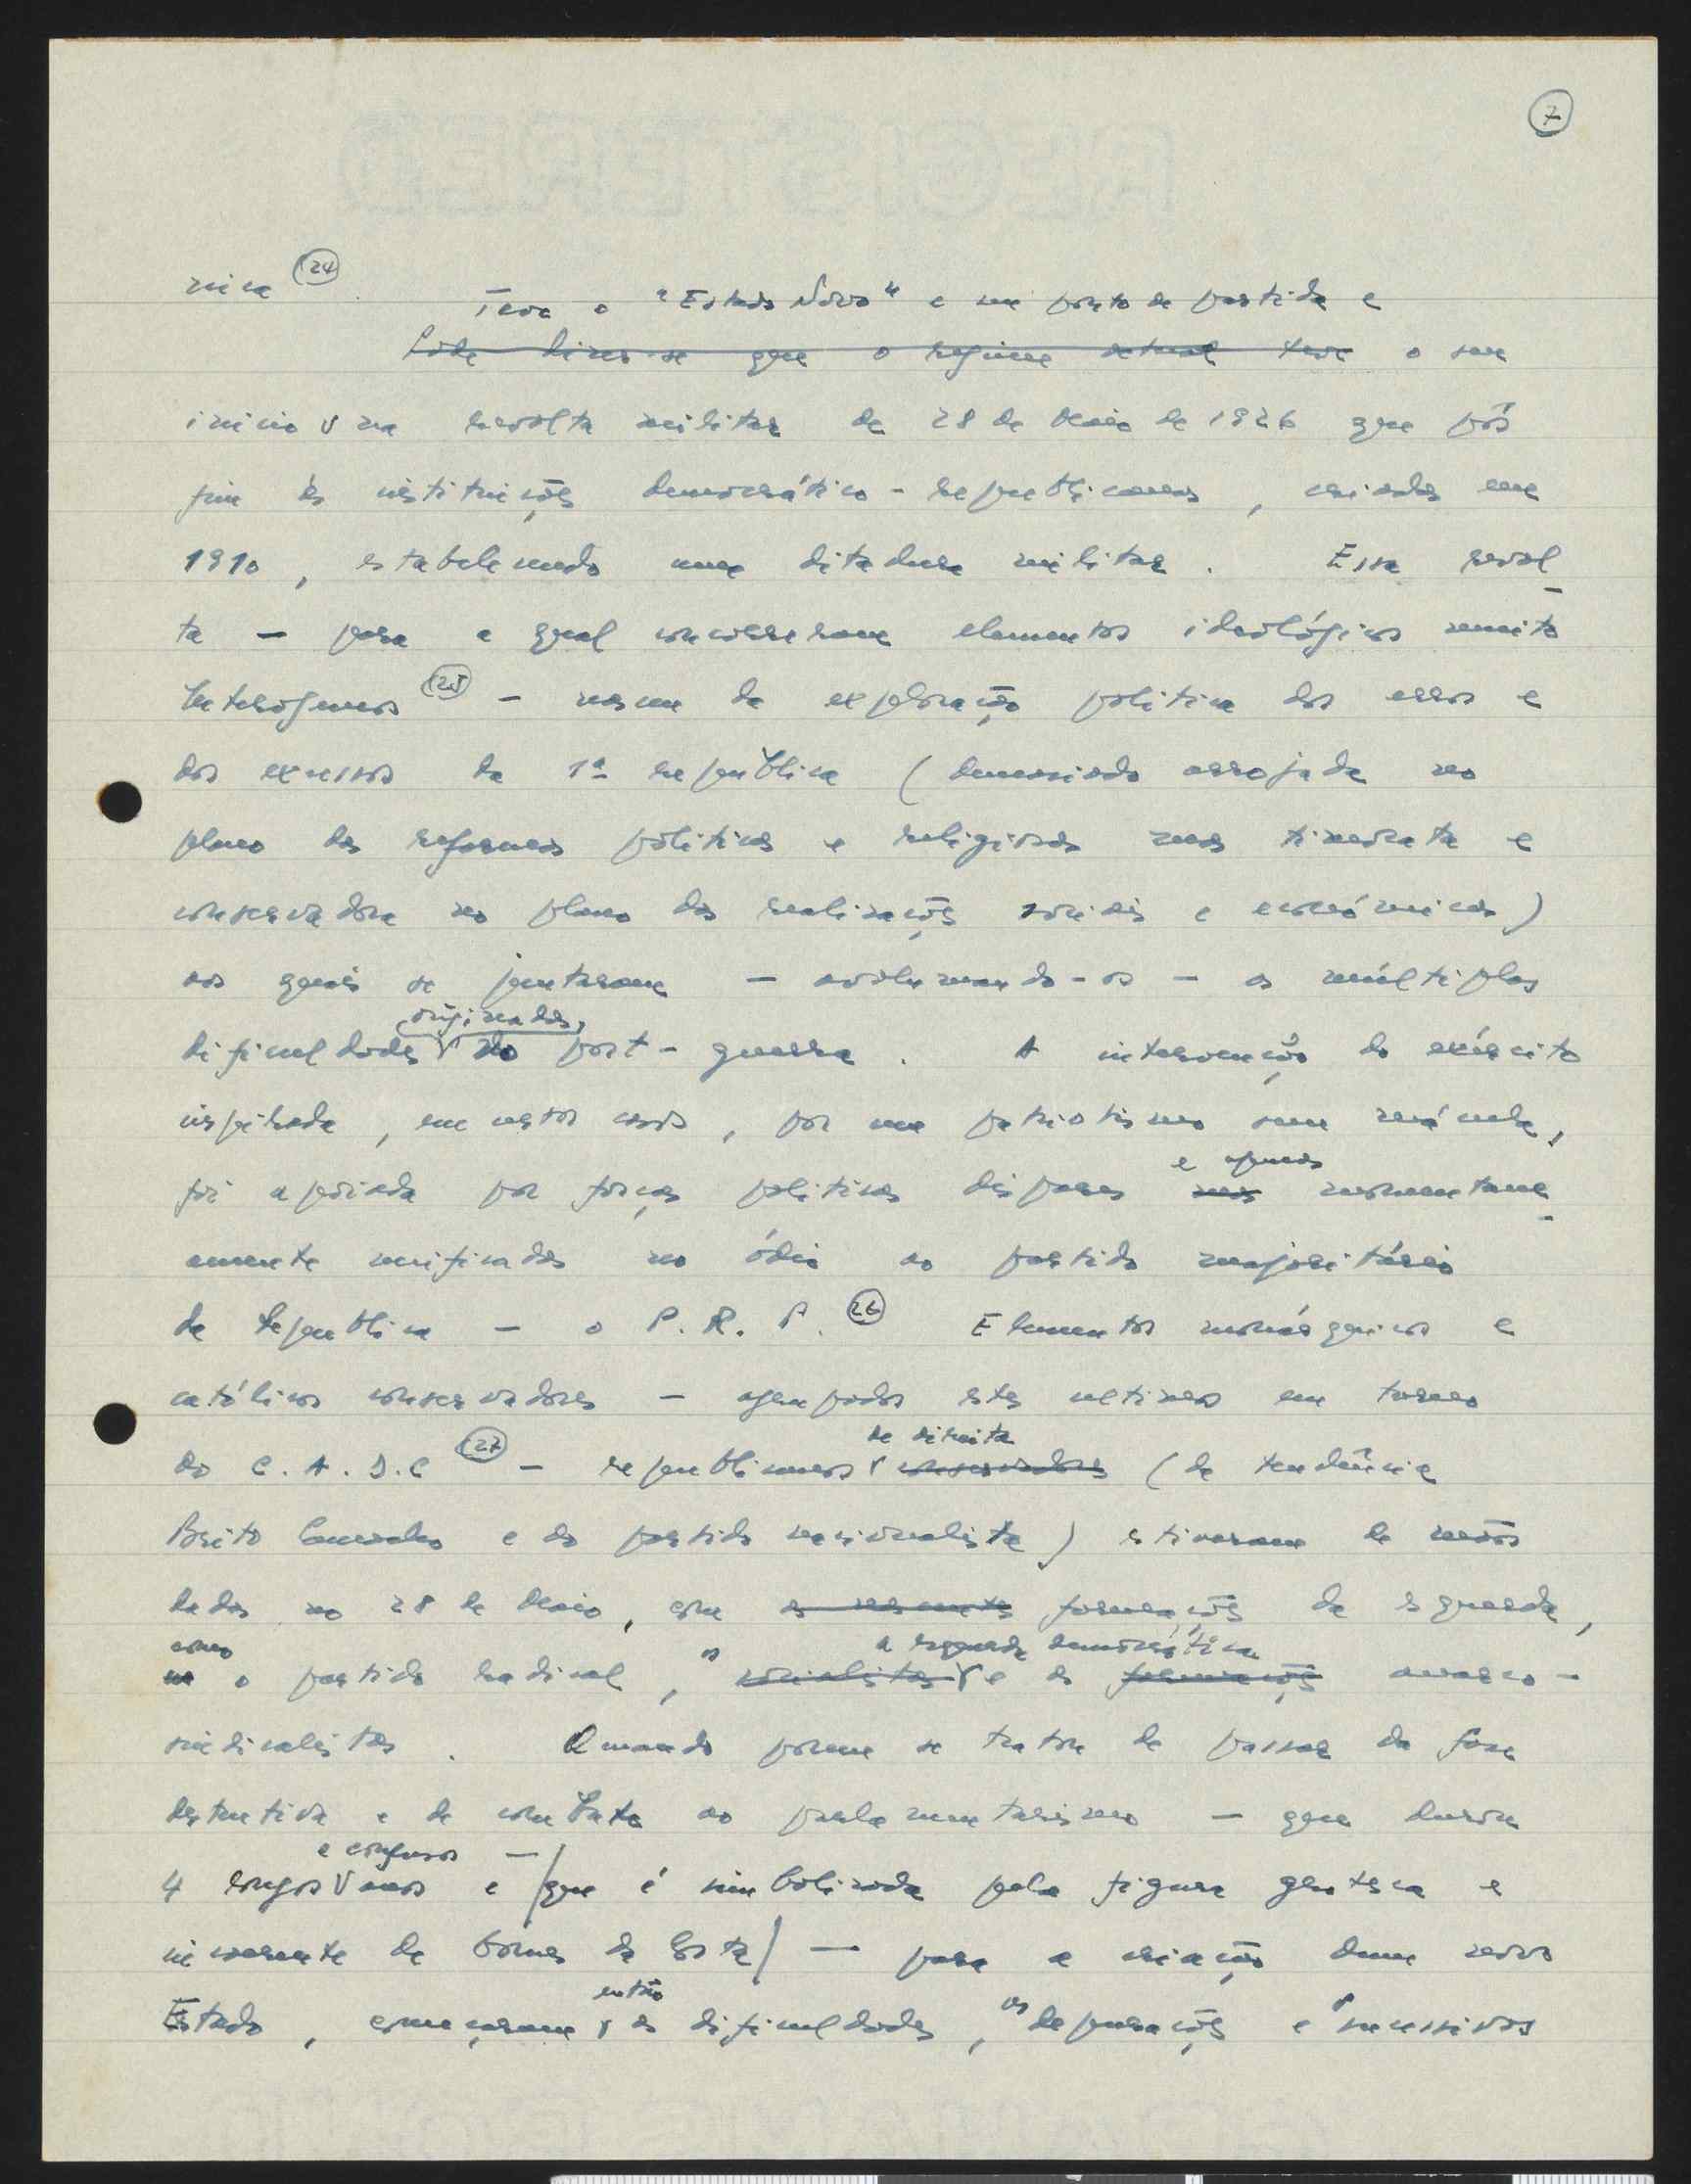 7
nica (24)
Teve o "Estado Novo" o seu ponto de partida e
Pode dizer-se que o regime actual teve o seu
inicio na revolta militar de 28 de Maio de 1926 que pôs
fim ás instituições democrático-republicanas, criadas em
1910, estabelecendo uma ditadura militar. Essa revol-
ta — para a qual concorreram elementos ideológicos muito
heterogeneos (25) — nasceu da exploração politica dos erros e
dos excessos da 1ª republica (demasiado arrojada no
plano das reformas politicas e religiosas mas timorata e
conservadora no plano das realizações sociais e económicas)
aos quais se juntaram — avolumando-os — as múltiplas
originadas,
dificuldades do post-guerra. A intervenção do exército
inspirada, em certos casos, por um patriotismo sem mácula,
e apenas
foi apoiada por forças politicas dispares mas momentane-
amente unificadas no ódio ao partido majoritário
da Republica — o P. R. P. (26) Elementos monárquicos e
católicos conservadores — agrupados estes ultimos em torno
de direita
do C. A. D. C (27) — republicanos conservadores (de tendência
Brito Camacho e do partido nacionalista) estiveram de mãos
dadas no 28 de Maio, com formações da esquerda,
como os a esquerda democrática
o partido radical, socialistas e os formações anarco-
sindicalistas. Quando porem se tratou de passar da fase
destrutiva e de combate ao parlamentarismo — que durou
e confusos —
4 longos anos e /que é simbolizada pela figura grotesca e
incoerente de Gomes da Costa/ — para a criação dum novo
então
Estado, começaram as dificuldades, as depurações e sucessivos